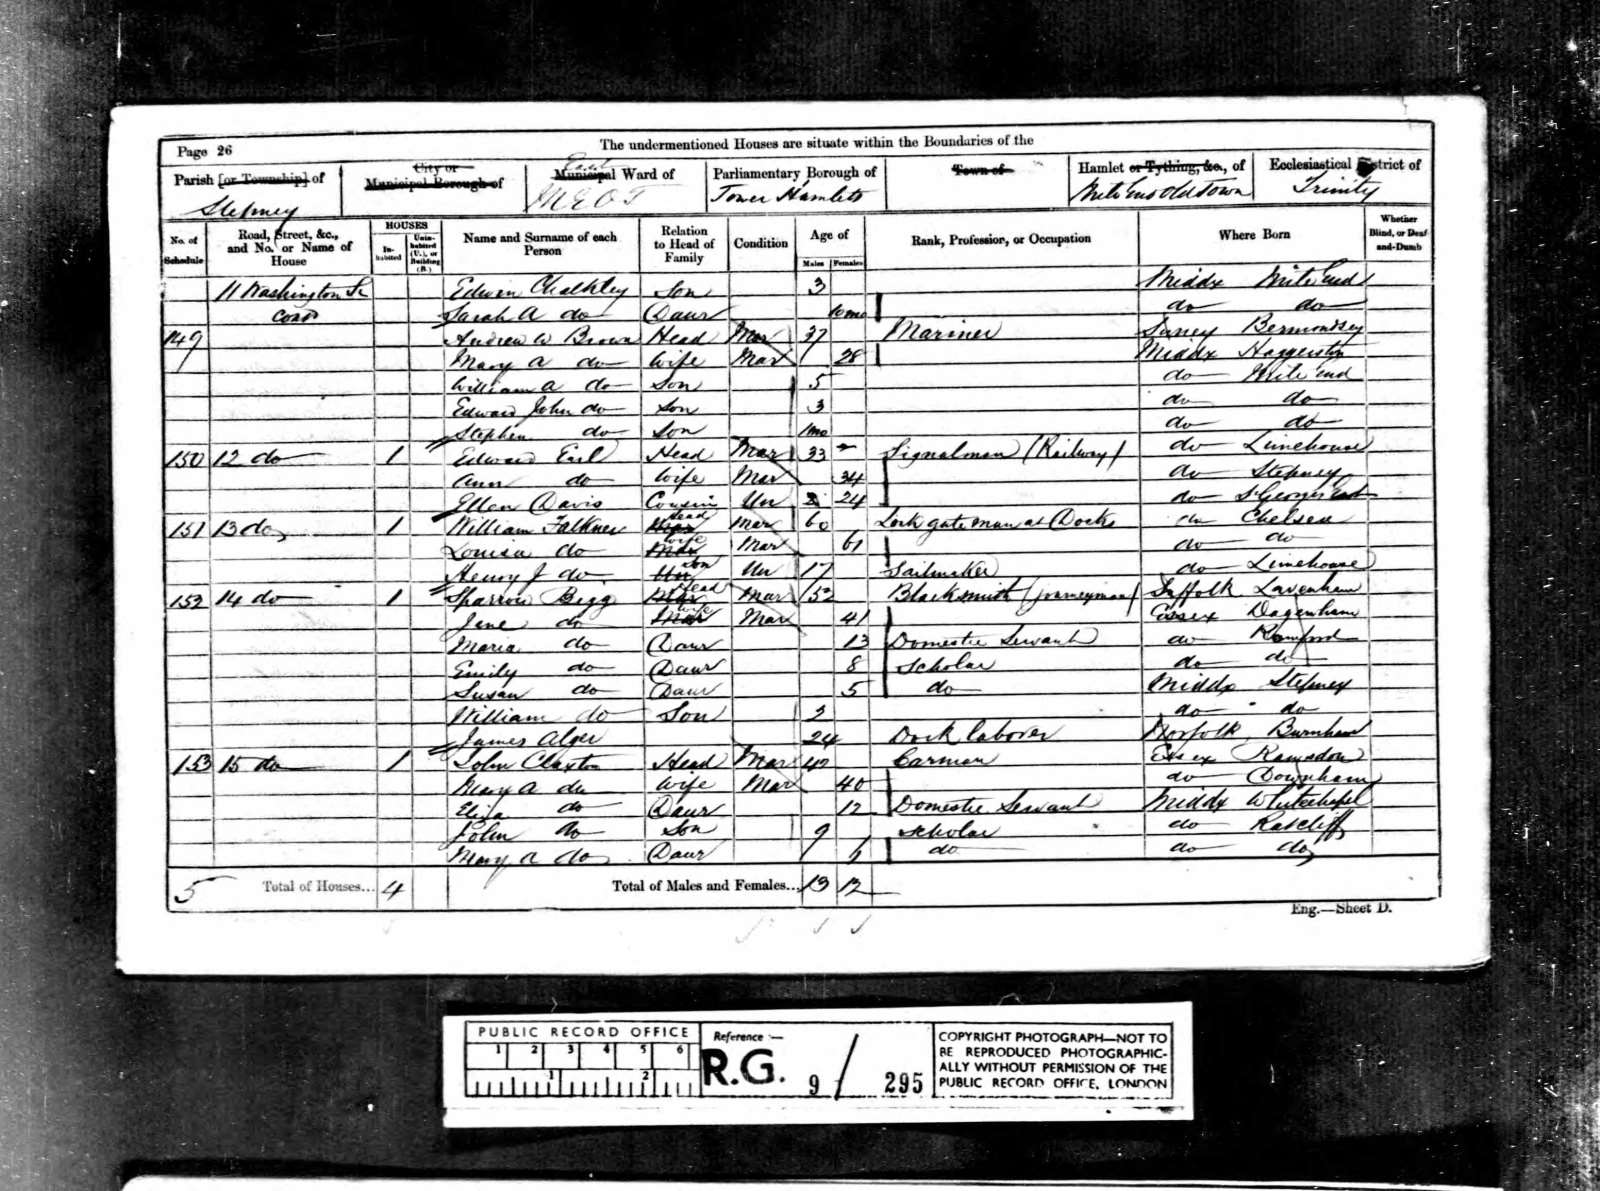 Page 26 The undermentioned Houses are situate within the Boundaries of the
Parish [or Township] of City or Municipal Borough of East Municipal Ward of Parliamentary Borough of Town of Hamlet or Tything, &c., of Ecclesiastical District of
Stepney M E O T Tower Hamlets Mile End Old Town Trinity
No. of Schedule Road, Street, &c., and No. or Name of House HOUSES Inhabited Uninhabited (U.), or Building (B.) Name and Surname of each Person Relation to Head of Family Condition Age of Males Females Rank, Profession, or Occupation Where Born Whether Blind, or Deaf-and-Dumb
11 Washington St Edwin Chalkley Son 3 Middx Mile End
Contd Sarah A do Daur 10mo do do
149 Andrew W Brown Head Mar 37 Mariner Surrey Bermondsey
Mary A do Wife Mar 28 Middx Haggerston
William A do Son 5 do Mile End
Edward John do Son 3 do do
Stephen do Son 1mo do do
150 12 do 1 Edward Earl Head Mar 33 Signalman (Railway) do Limehouse
Ann do Wife Mar 34 do Stepney
Ellen Davis Cousin Un 24 do St Georges East
151 13 do 1 William Falkner Head Mar 60 Lock gate man at Docks do Chelsea
Louisa do Wife Mar 61 do do
Henry J do Son Un 17 Sailmaker do Limehouse
152 14 do 1 Sparrow Bigg Head Mar 52 Blacksmith (journeyman) Suffolk Lavenham
Jane do Wife Mar 41 Essex Dagenham
Maria do Daur 13 Domestic Servant do Romford
Emily do Daur 8 Scholar do do
Susan do Daur 5 do Middx Stepney
William do Son 2 do do
James Alger 24 Dock laborer Norfolk Burnham
153 15 do 1 John Claxton Head Mar 42 Carman Essex Ramsdon
Mary A do Wife Mar 40 do Downham
Eliza do Daur 12 Domestic Servant Middx Whitechapel
John do Son 9 Scholar do Ratcliff
Mary A do Daur 6 do do do
5 Total of Houses... 4 Total of Males and Females... 13 12
Eng.—Sheet D.
PUBLIC RECORD OFFICE
1 2 3 4 5 6
1 2
Reference :—
R.G. 9 / 295
COPYRIGHT PHOTOGRAPH—NOT TO
BE REPRODUCED PHOTOGRAPHIC-
ALLY WITHOUT PERMISSION OF THE
PUBLIC RECORD OFFICE, LONDON